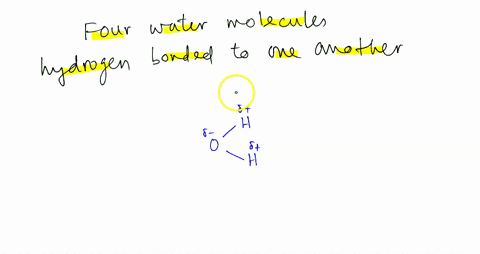 Four water molecules
hydrogen bonded to one another
δ+
H
δ-
O
δ+
H